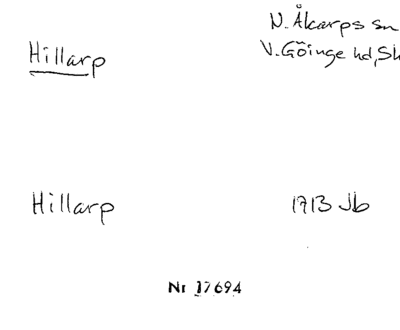 N. Åkarps sn
Hillarp
V. Göinge hd, Sk
Hillarp
1713 Jb
Nr 17694